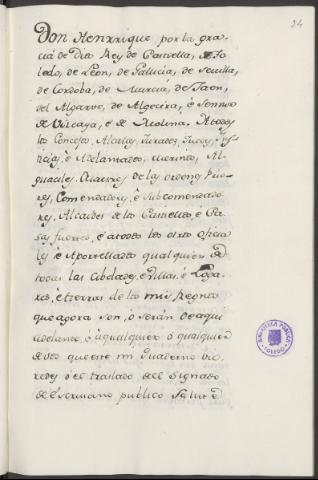 24
Don Henrrique por la gra-
cia de Dios Rey de Castiella, de To-
ledo, de Leon, de Gallicia, de Sevilla,
de Cordoba, de Murcia, de Jaen,
del Algarve, de Algecira, é Sennor
de Vizcaya, é de Molina. A todos
los Concejos, Alcalles, Jurados, Jueces, Jus-
ticias, é Adelantados, Merinos, Al-
guaciles, Maestres de las ordenes, Prio-
res, Comendadores, é Subcomendado-
res, Alcaides de los Castiellos, é Ca-
sas fuertes, é a todos los otros oficia-
les é Aportellados qualquier de
todas las Cibdades, é Villas, é Loga-
res, é tierras de los mis Regnos
que agora son, ó serán de aqui
adelante, é á qualquier ó qualquier
de vos que este mi Quaderno vie-
redes ó el traslado dell Signado
de Escrivano publico Salud é
BIBLIOTECA PUBLICA
TOLEDO